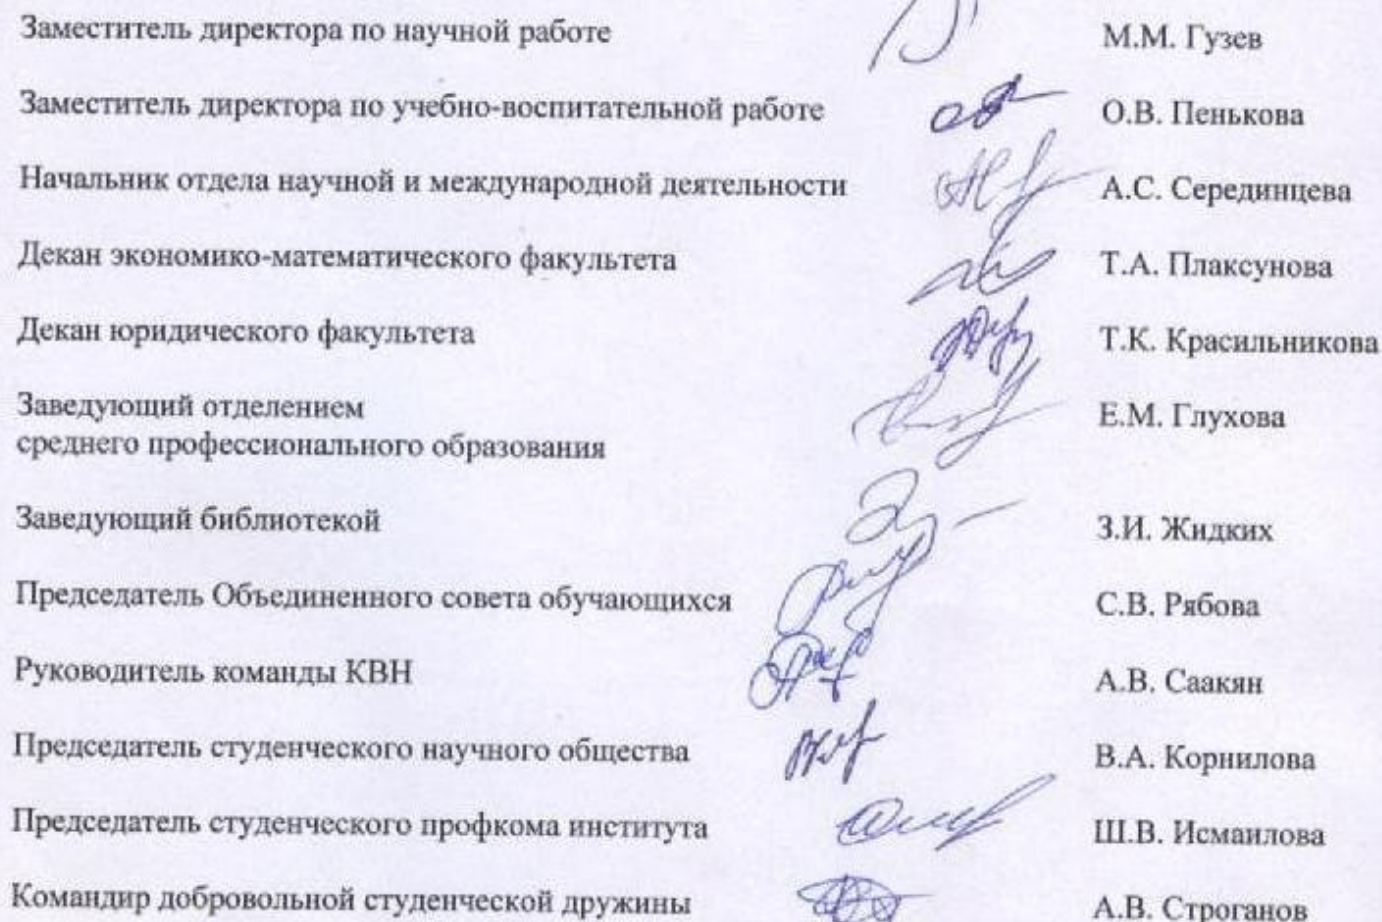 Заместитель директора по научной работе М.М. Гузев
Заместитель директора по учебно-воспитательной работе О.В. Пенькова
Начальник отдела научной и международной деятельности А.С. Серединцева
Декан экономико-математического факультета Т.А. Плаксунова
Декан юридического факультета Т.К. Красильникова
Заведующий отделением Е.М. Глухова
среднего профессионального образования
Заведующий библиотекой З.И. Жидких
Председатель Объединенного совета обучающихся С.В. Рябова
Руководитель команды КВН А.В. Саакян
Председатель студенческого научного общества В.А. Корнилова
Председатель студенческого профкома института Ш.В. Исмаилова
Командир добровольной студенческой дружины А.В. Строганов